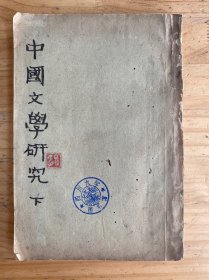 中國文學研究下